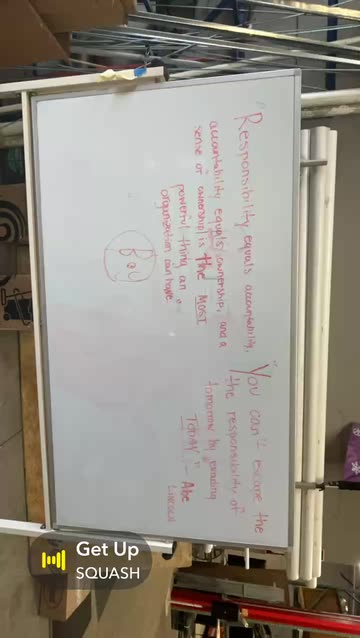 "Responsibility equals accountability,
accountability equals ownership, and a
sense of ownership is the MOST
powerful thing an
organization can have"
"You can't escape the
the responsibility of
tomorrow by evading
TODAY" - Abe
LINCOLN
Get Up
SQUASH